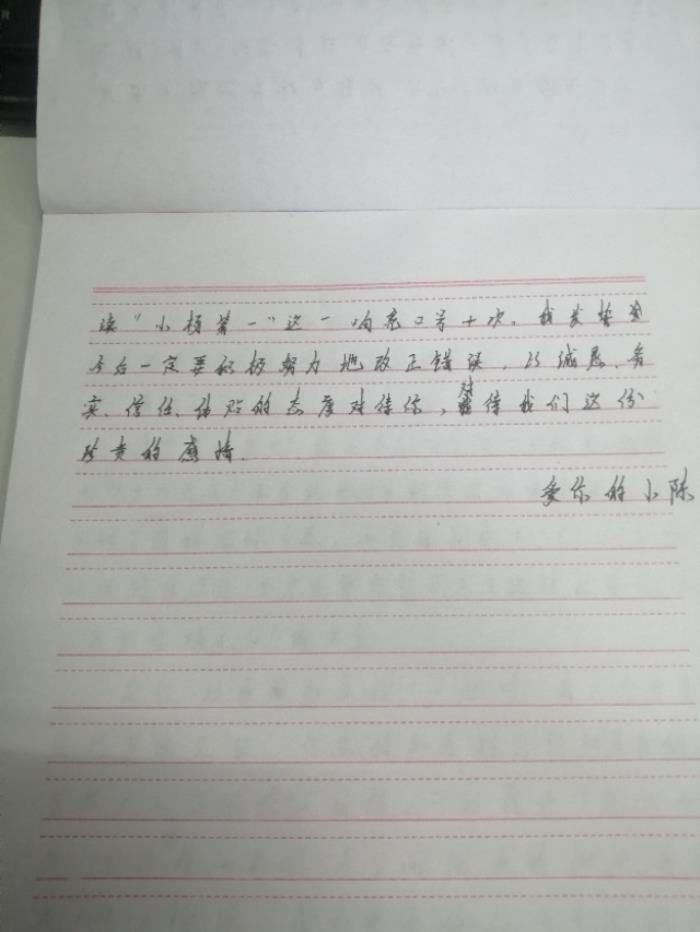 读“小杨第一”这一响亮口号十次。我发誓
今后一定要积极努力地改正错误，以诚恳、务
实、信任、体贴的态度对待你，对待我们这份
珍贵的感情.
爱你的小陈